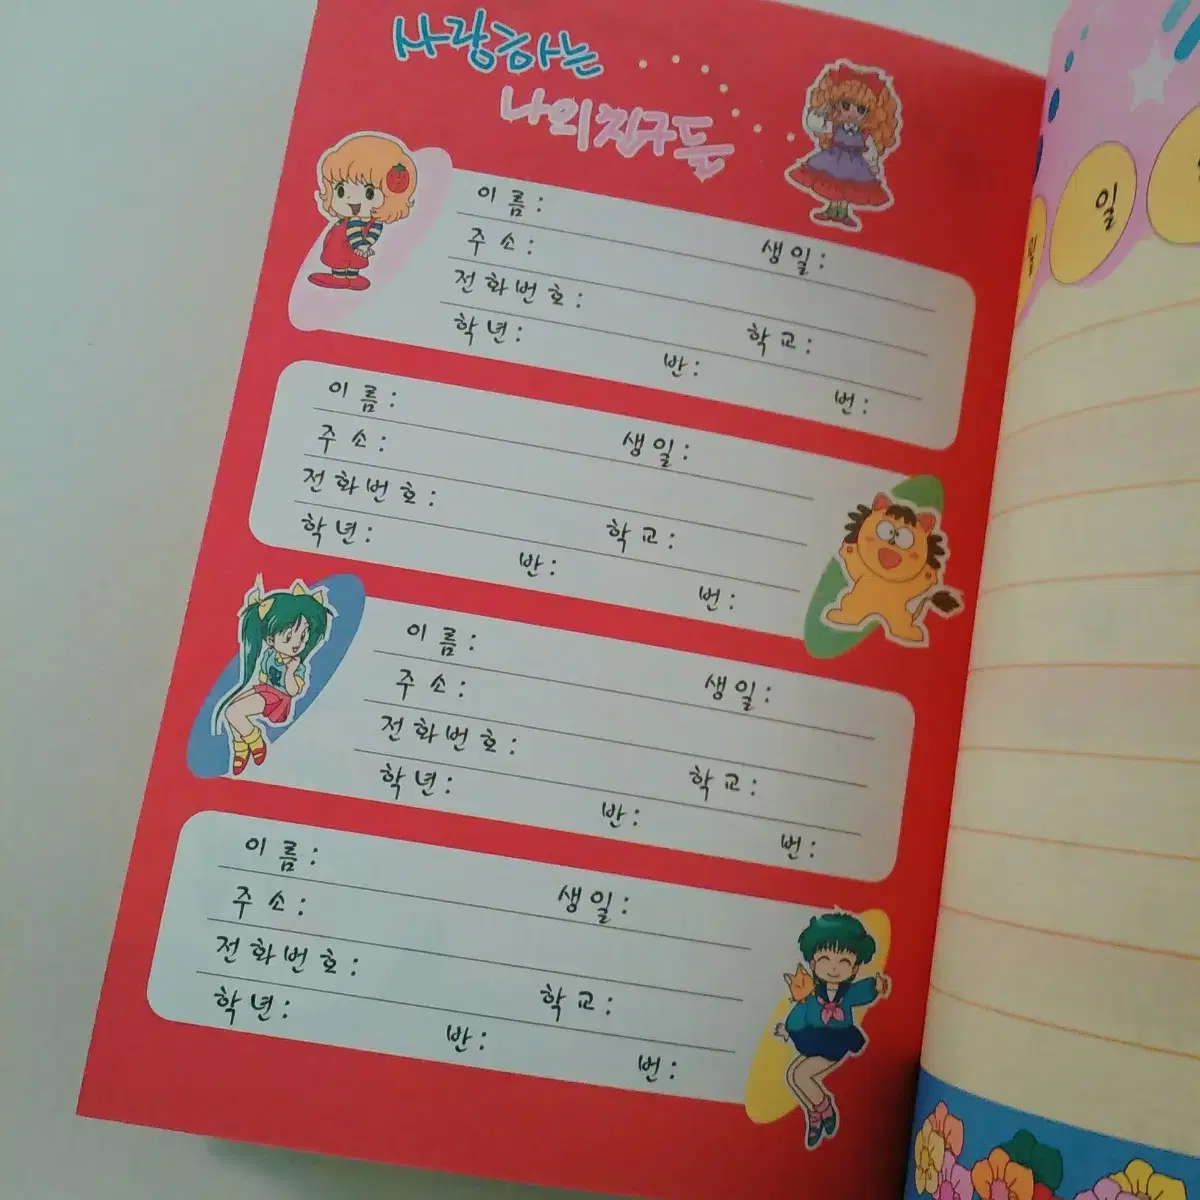 사랑하는
나의 친구들
이름:
주소: 생일:
전화번호:
학년: 학교:
반: 번:
이름:
주소: 생일:
전화번호:
학년: 학교:
반: 번:
이름:
주소: 생일:
전화번호:
학년: 학교:
반: 번:
이름:
주소: 생일:
전화번호:
학년: 학교:
반: 번:
월 일